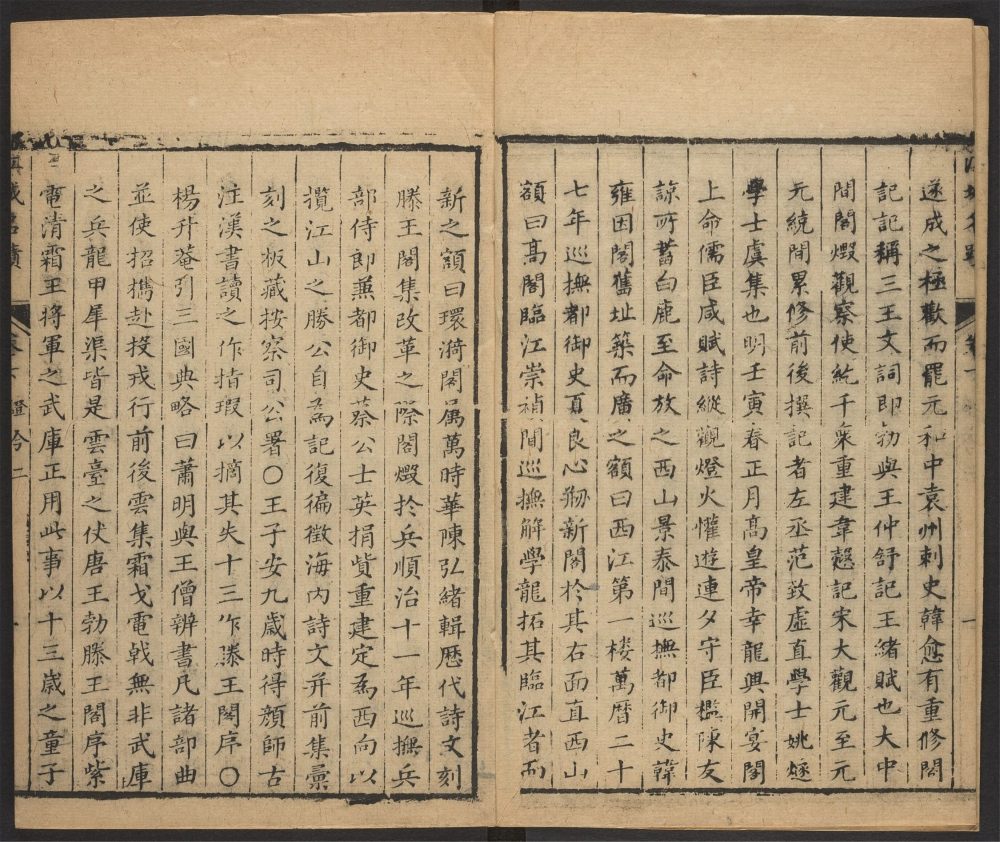 遂成之極歡而罷元和中袁州刺史韓愈有重修閣
記記稱三王文詞即勃與王仲舒記王緒賦也大中
間閣燬觀察使紇干衆重建韋愨記宋大觀元至元
元統間累修前後撰記者左丞范致虛直學士姚燧
學士虞集也明壬寅春正月高皇帝幸龍興開宴閣
上命儒臣咸賦詩縱觀燈火懽遊連夕守臣檻陳友
諒所蓄白鹿至命放之西山景泰間巡撫都御史韓
雍因閣舊址築而廣之額曰西江第一樓萬曆二十
七年巡撫都御史夏良心剏新閣於其右面直西山
額曰高閣臨江崇禎間巡撫解學龍拓其臨江者而
新之額曰環漪閣屬萬時華陳弘緒輯歷代詩文刻
滕王閣集改革之際閣燬於兵順治十一年巡撫兵
部侍郎兼都御史蔡公士英捐貲重建定為西向以
攬江山之勝公自為記復徧徵海內詩文并前集彙
刻之板藏按察司公署○王子安九歲時得顏師古
注漢書讀之作指瑕以摘其失十三作滕王閣序○
楊升菴引三國典略曰蕭明與王僧辨書凡諸部曲
並使招攜赴投戎行前後雲集霜戈電戟無非武庫
之兵龍甲犀渠皆是雲臺之仗唐王勃滕王閣序紫
電清霜王將軍之武庫正用此事以十三歲之童子